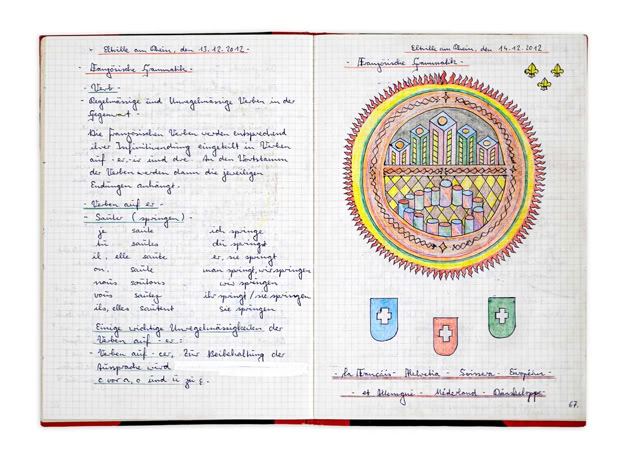 - Eltville am Rhein, den 13.12.2012 -
- Französische Grammatik -
- Verb -
- Regelmässige und Unregelmässige Verben in der
Gegenwart -
Die französischen Verben werden entsprechend
ihrer Infinitivendung eingeteilt in Verben
auf -er, -ir und -dre. An den Wortstamm
der Verben werden dann die jeweiligen
Endungen anhängt.
- Verben auf er -
- Sauter (springen) -
je saute ich springe
tu sautes du springst
il, elle saute er, sie springt
on, saute man springt, wir springen
nous sautons wir springen
vous sautez ihr springt / sie springen
ils, elles sautent Sie springen
Einige wichtige Unregelmässigkeiten der
Verben auf -er:
- Verben auf -cer, Zur Beibehaltung der
Aussprache wird
c vor a, o und u zu ç.
Eltville am Rhein, den 14.12.2012
- Französische Grammatik -
- la Français - Helvetia - Soissera - Européum -
- et Allemagne - Niederland -
67.